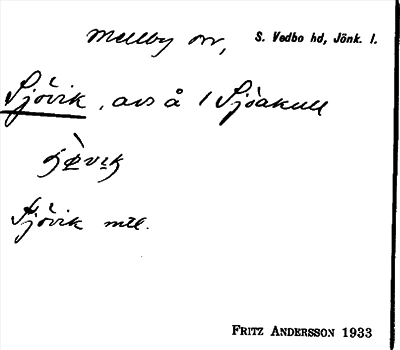 Mellby sn, S. Vedbo hd, Jönk. l.
Sjövik, avs å 1 Sjöakull
Sjövik mtl.
FRITZ ANDERSSON 1933